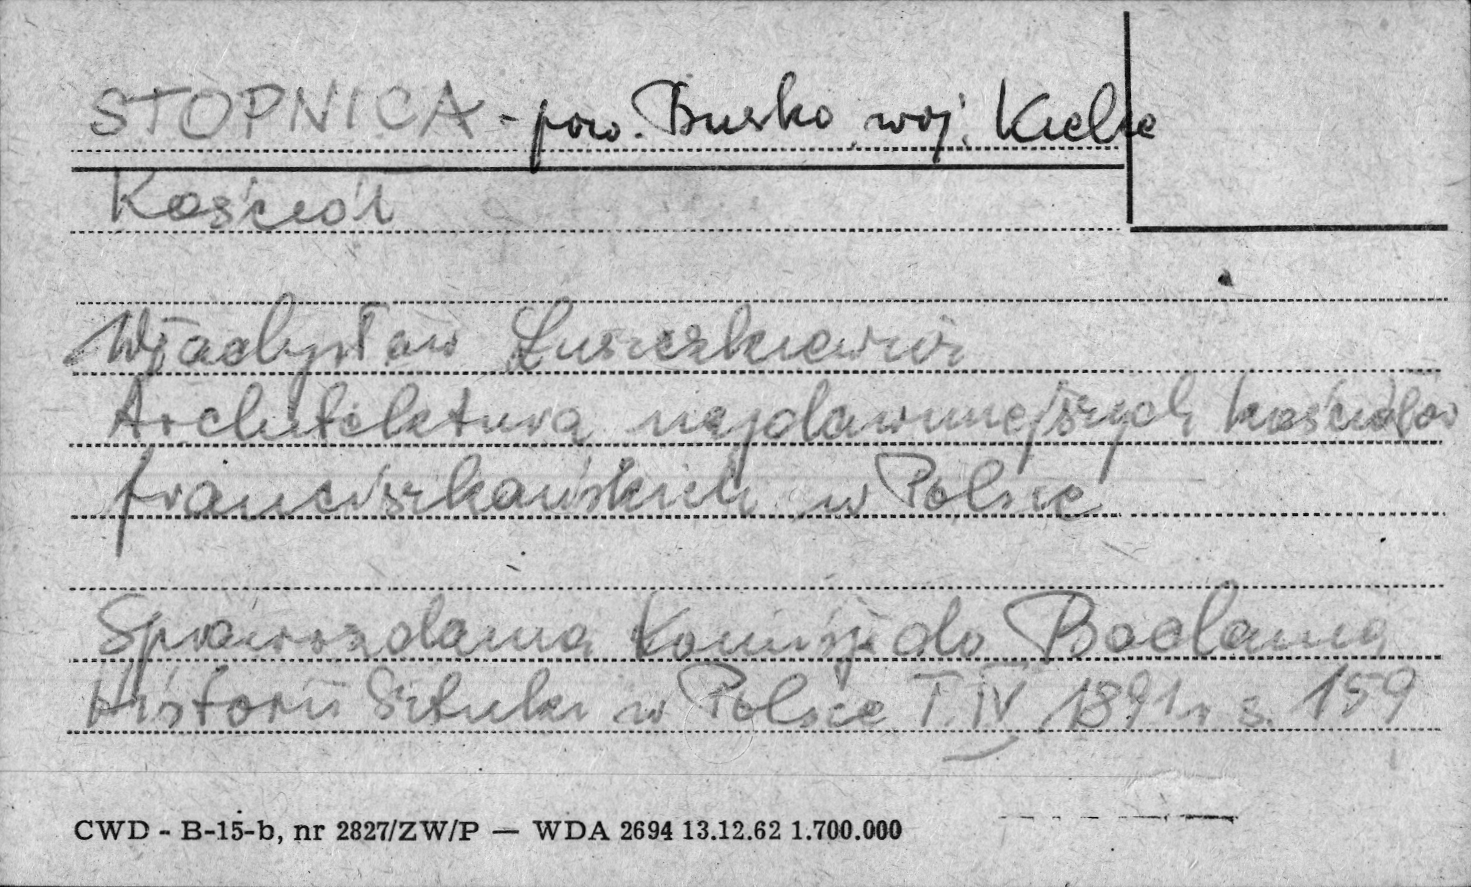 STOPNICA - pow. Busko woj. Kielce
Kościół
Władysław Łuszczkiewicz
Architektura najdawniejszych kościołów
franciszkańskich w Polsce
Sprawozdania Komisji do Badania
Historii Sztuki w Polsce T. IV 1891 r s. 159
CWD - B-15-b, nr 2827/ZW/P — WDA 2694 13.12.62 1.700.000